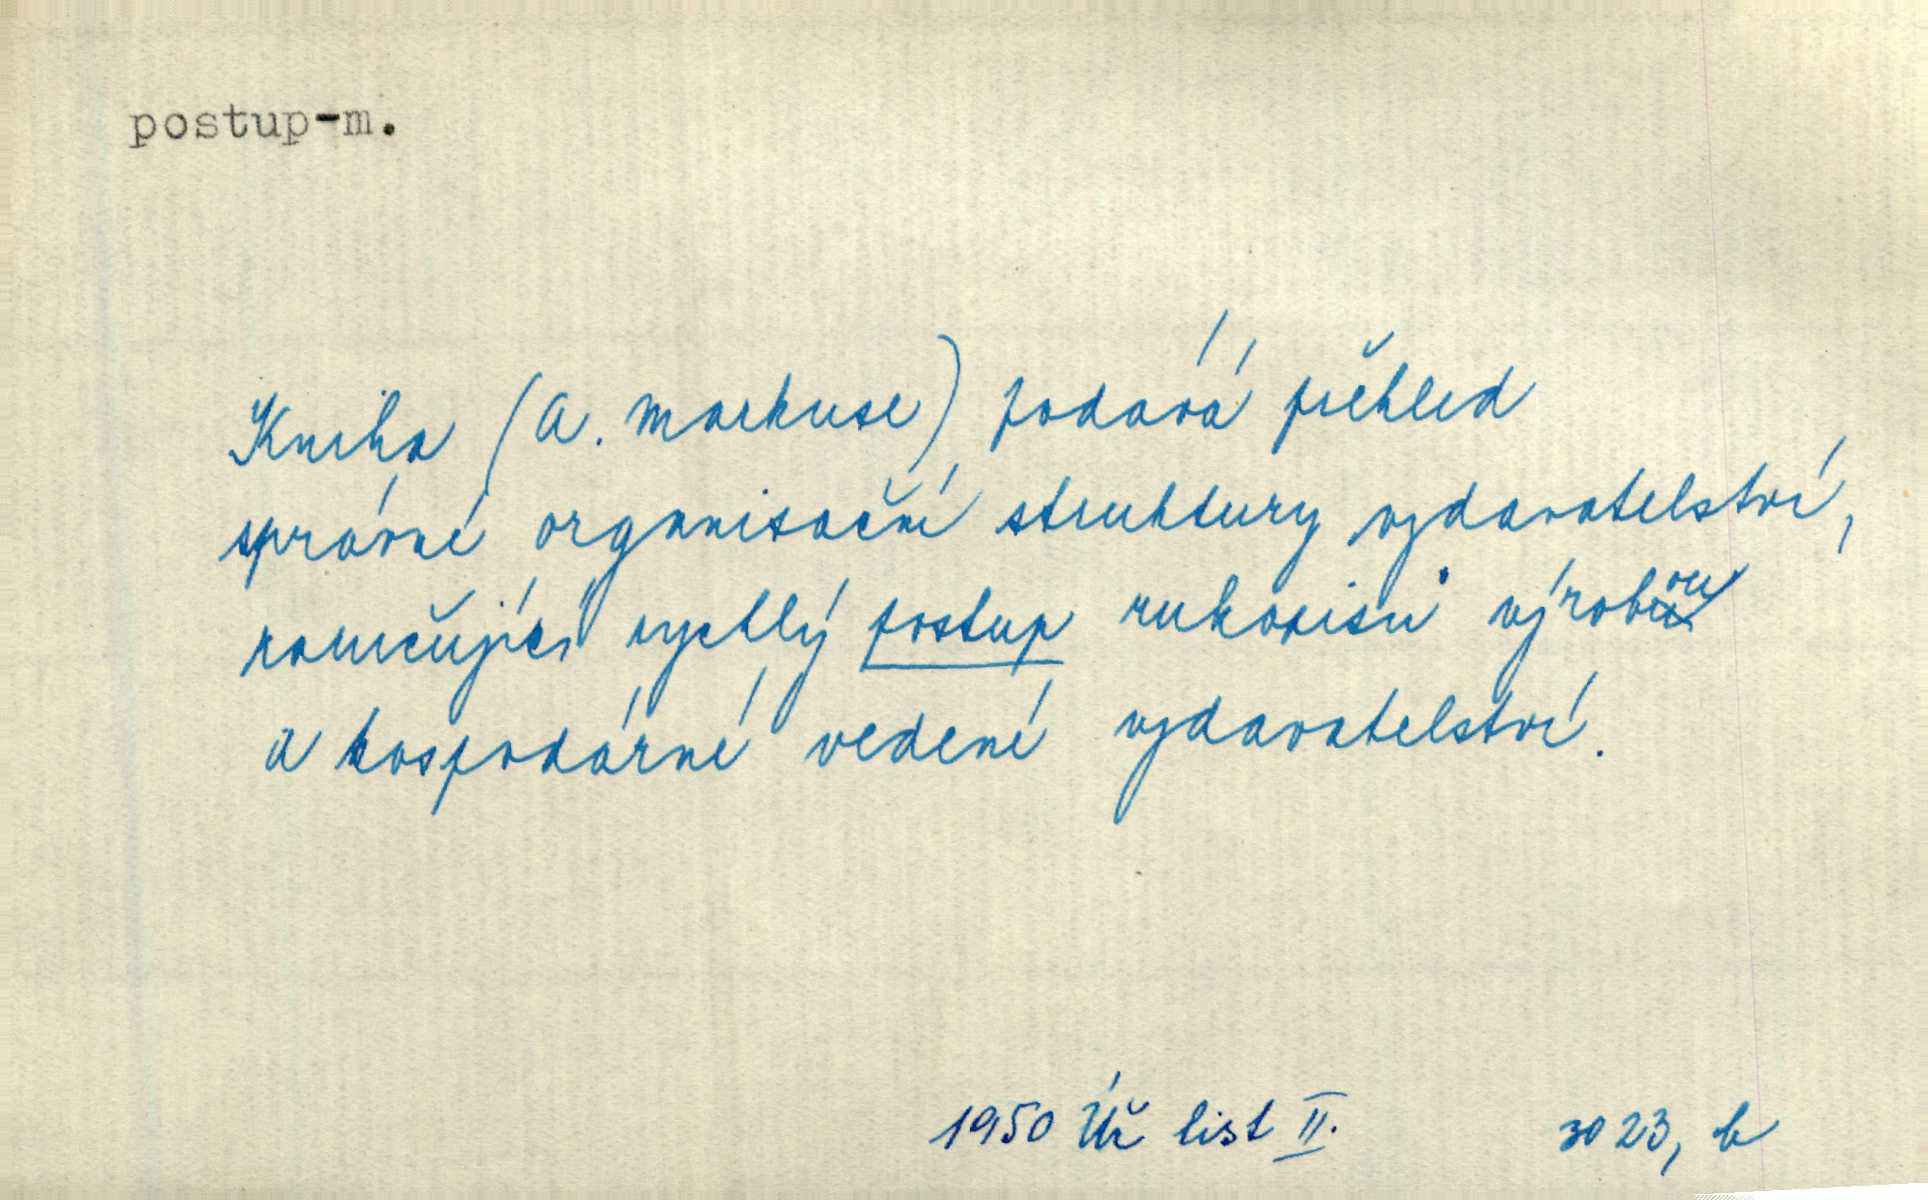 postup-m.
Kniha (A. Markuse) podává přehled
správné organisační struktury vydavatelství,
zaručující rychlý postup rukopisů výrobou
a hospodárné vedení vydavatelství.
1950 Úř list II. 3023, b